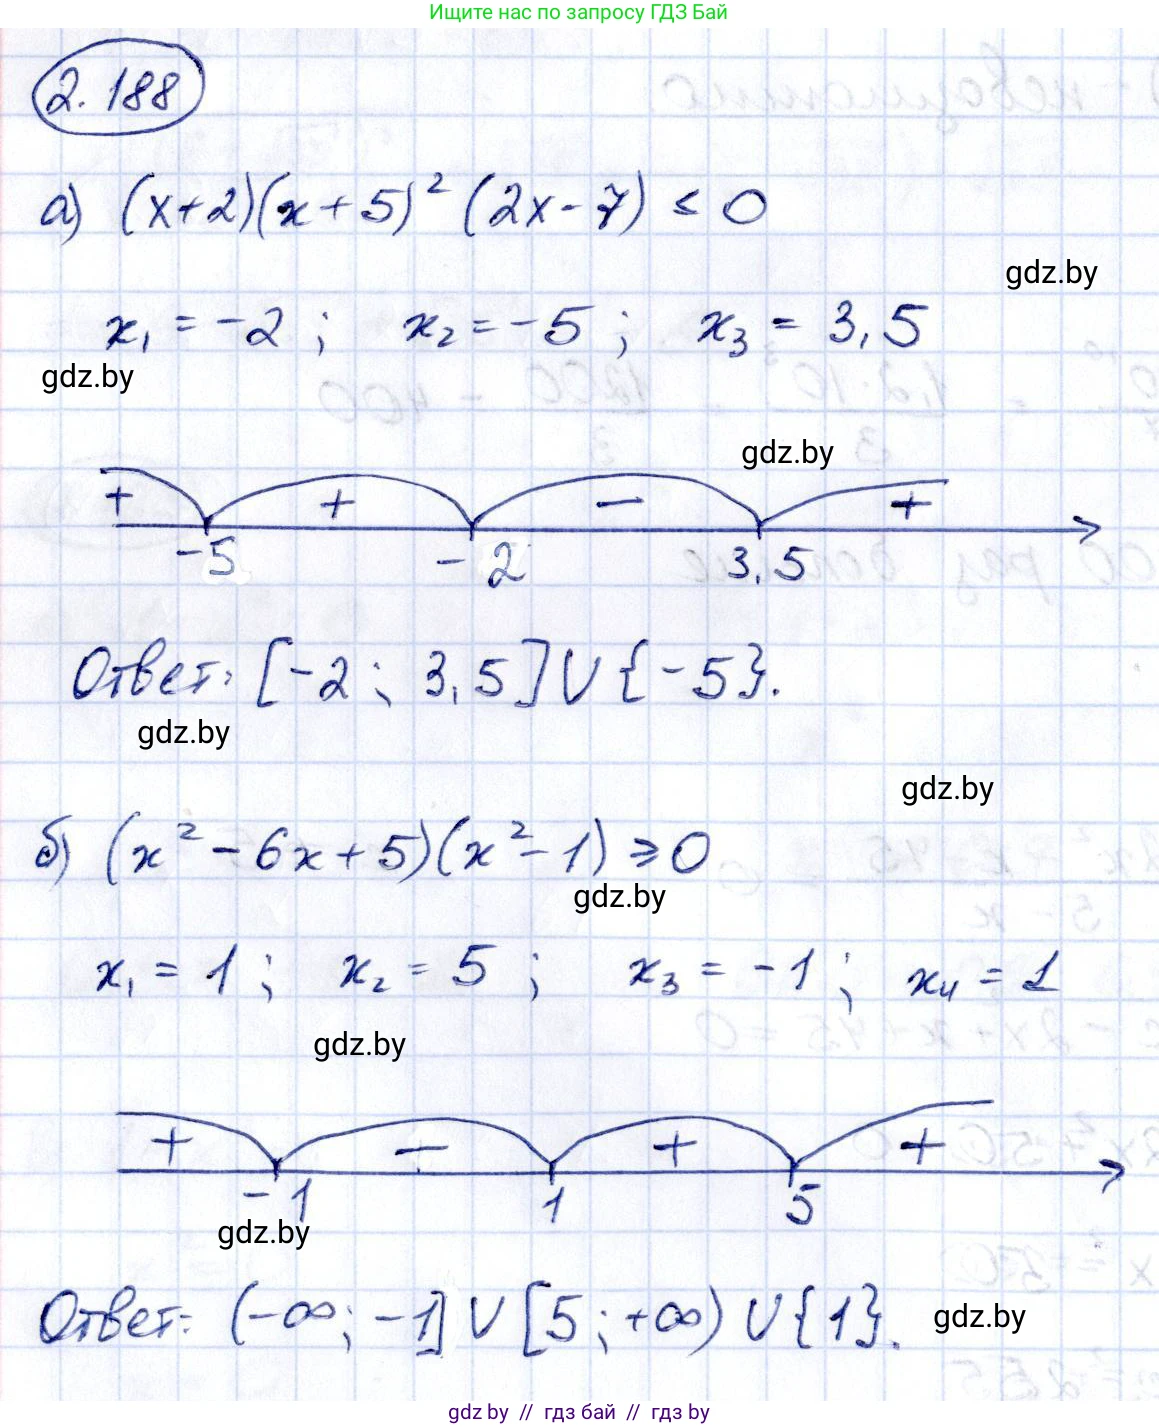 Ищите нас по запросу ГДЗ Бай
2.188
а) (x+2)(x+5)² (2x-7) ≤ 0
gdz.by
x₁ = -2 ; x₂ = -5 ; x₃ = 3,5
gdz.by
gdz.by
+ + − +
-5 -2 3,5
Ответ: [-2 ; 3,5] ∪ {-5}.
gdz.by
gdz.by
б) (x² - 6x + 5)(x² - 1) ≥ 0
gdz.by
x₁ = 1 ; x₂ = 5 ; x₃ = -1 ; x₄ = 1
gdz.by
+ − + +
-1 1 5
gdz.by
Ответ: (-∞; -1] ∪ [5 ; +∞) ∪ {1}.
gdz.by
gdz by // гдз бай // гдз by